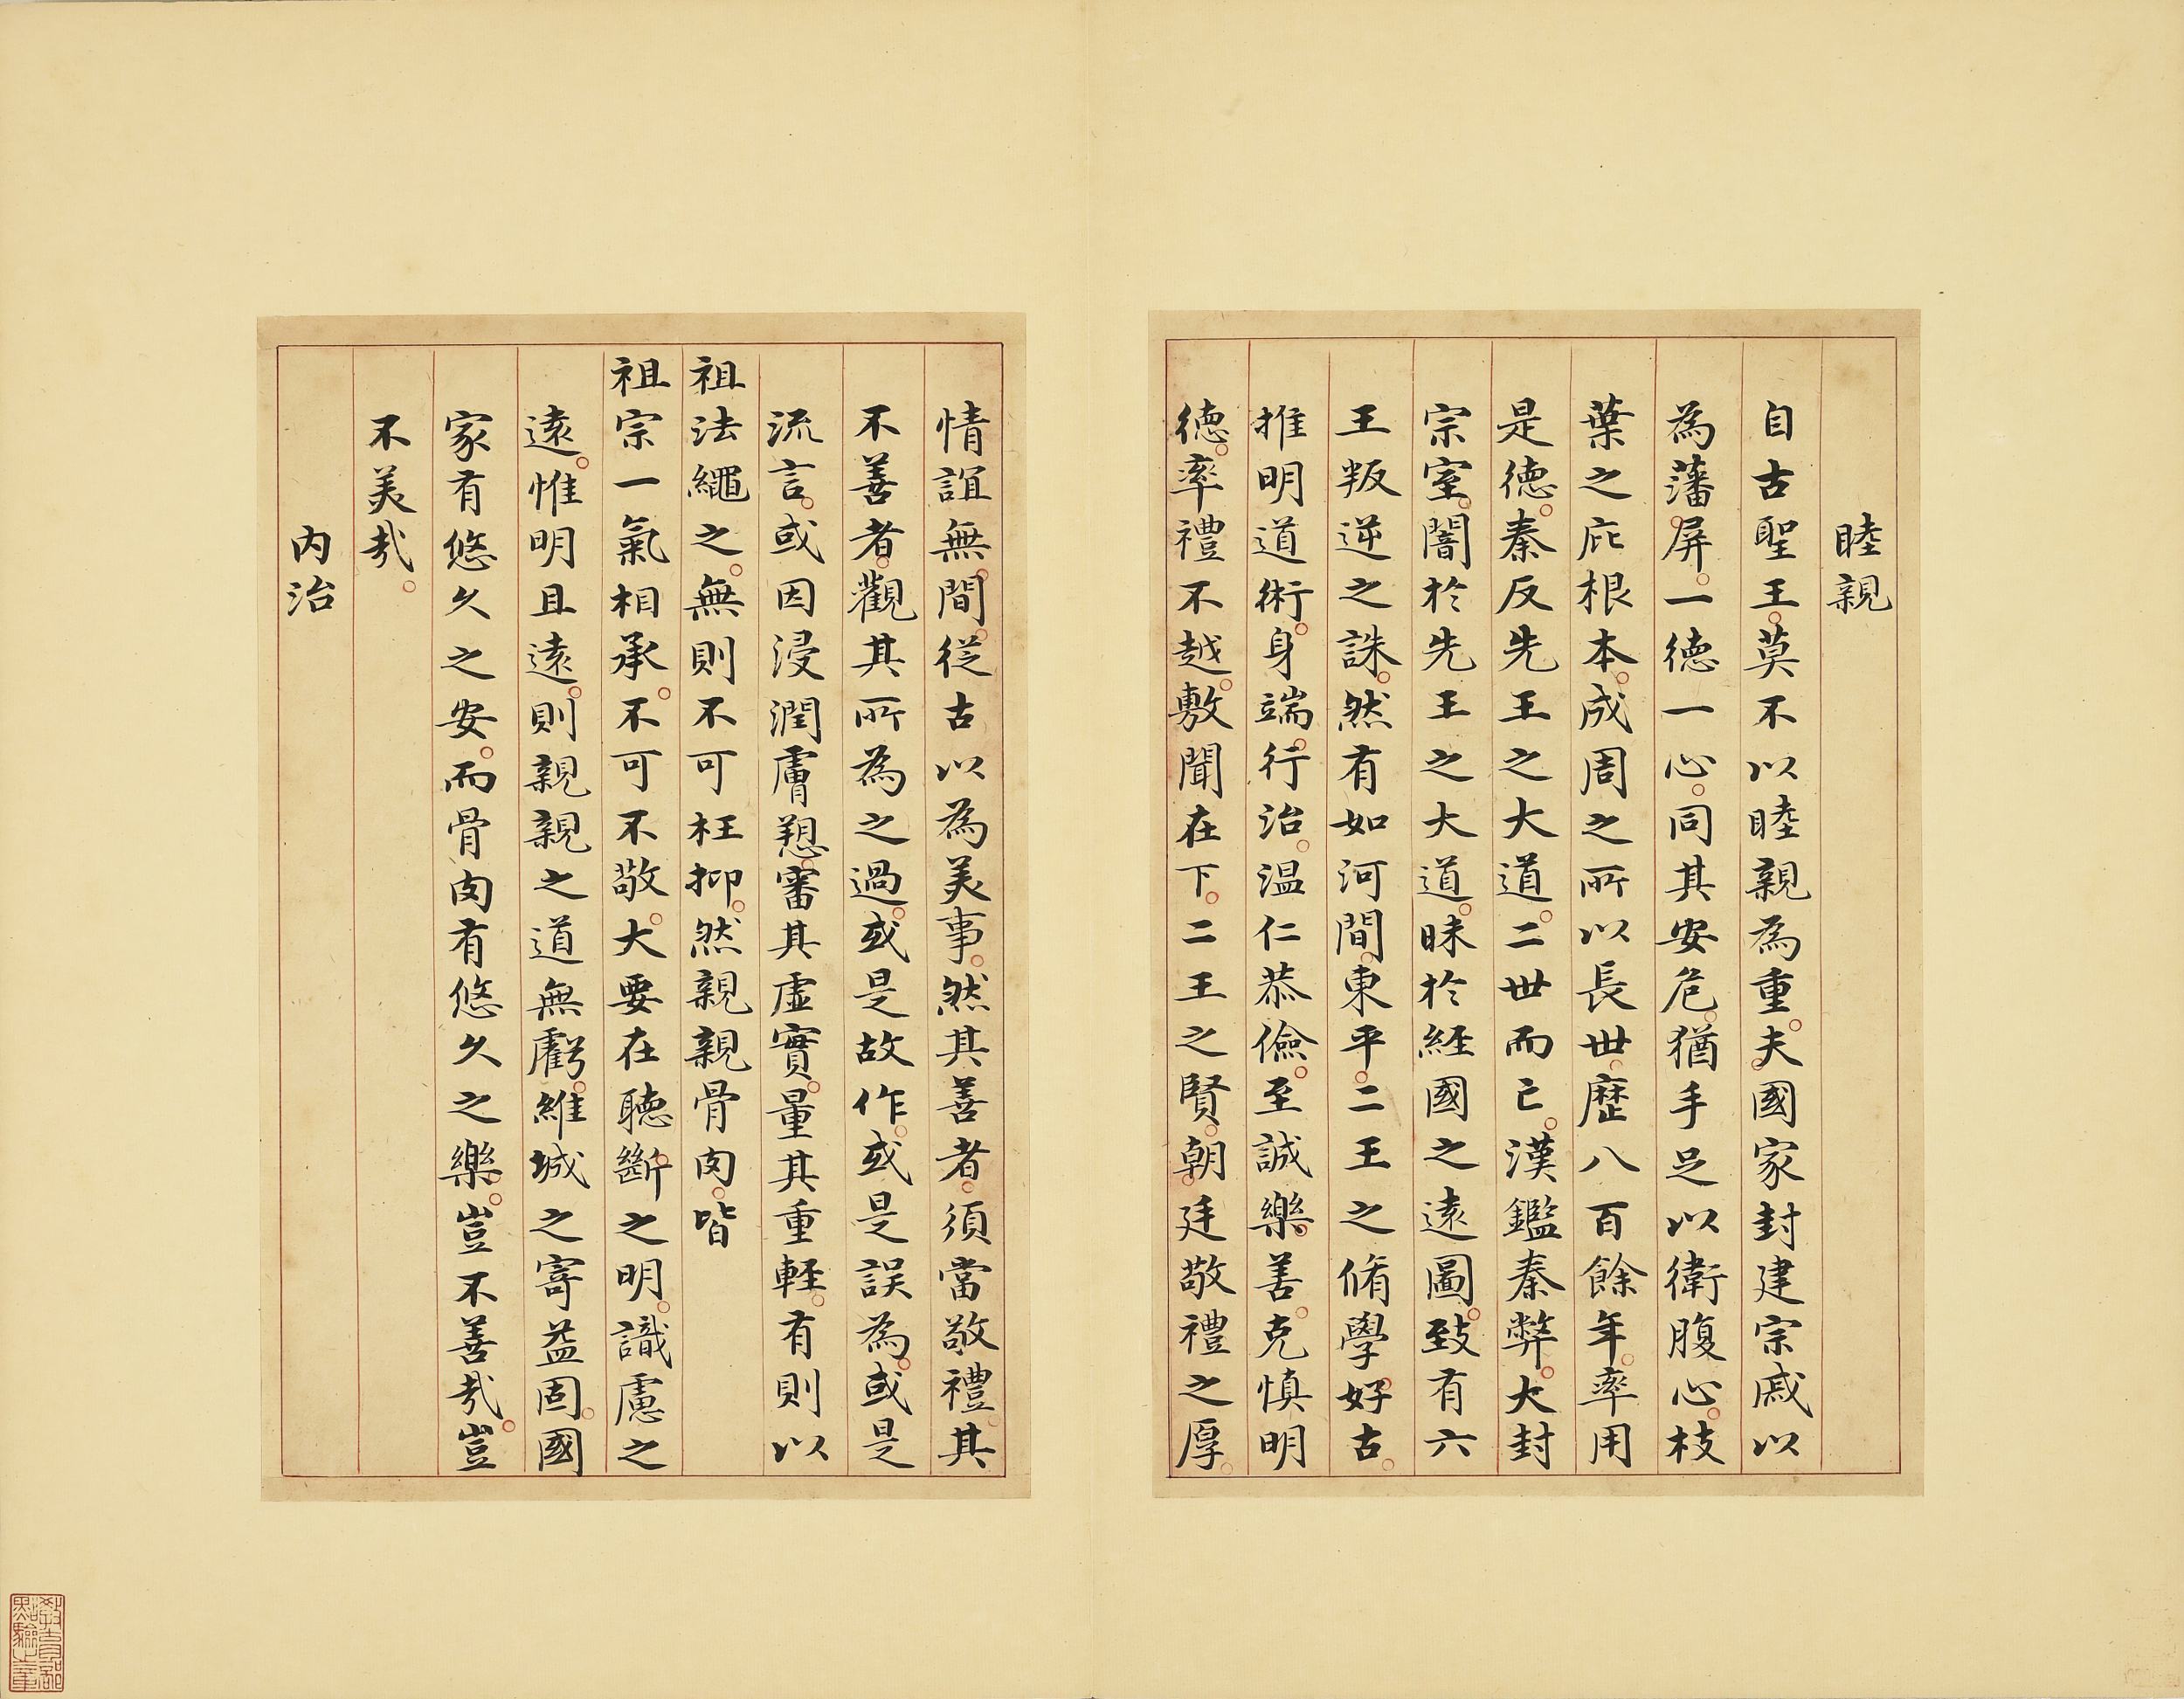 睦親
自古聖王莫不以睦親為重夫國家封建宗戚以
為藩屏一德一心同其安危猶手足以衛腹心枝
葉之庇根本成周之所以長世歷八百餘年率用
是德秦反先王之大道二世而亡漢鑑秦弊大封
宗室闇於先王之大道昧於經國之遠圖致有六
王叛逆之誅然有如河間東平二王之脩學好古
推明道術身端行治温仁恭儉至誠樂善克慎明
德率禮不越敷聞在下二王之賢朝廷敬禮之厚
情誼無間從古以為美事然其善者須當敬禮其
不善者觀其所為之過或是故作或是誤為或是
流言或因浸潤膚愬審其虛實量其重輕有則以
祖法繩之無則不可枉抑然親親骨肉皆
祖宗一氣相承不可不敬大要在聽斷之明識慮之
遠惟明且遠則親親之道無虧維城之寄益固國
家有悠久之安而骨肉有悠久之樂豈不善哉豈
不美哉
内治
教育部
點驗之章